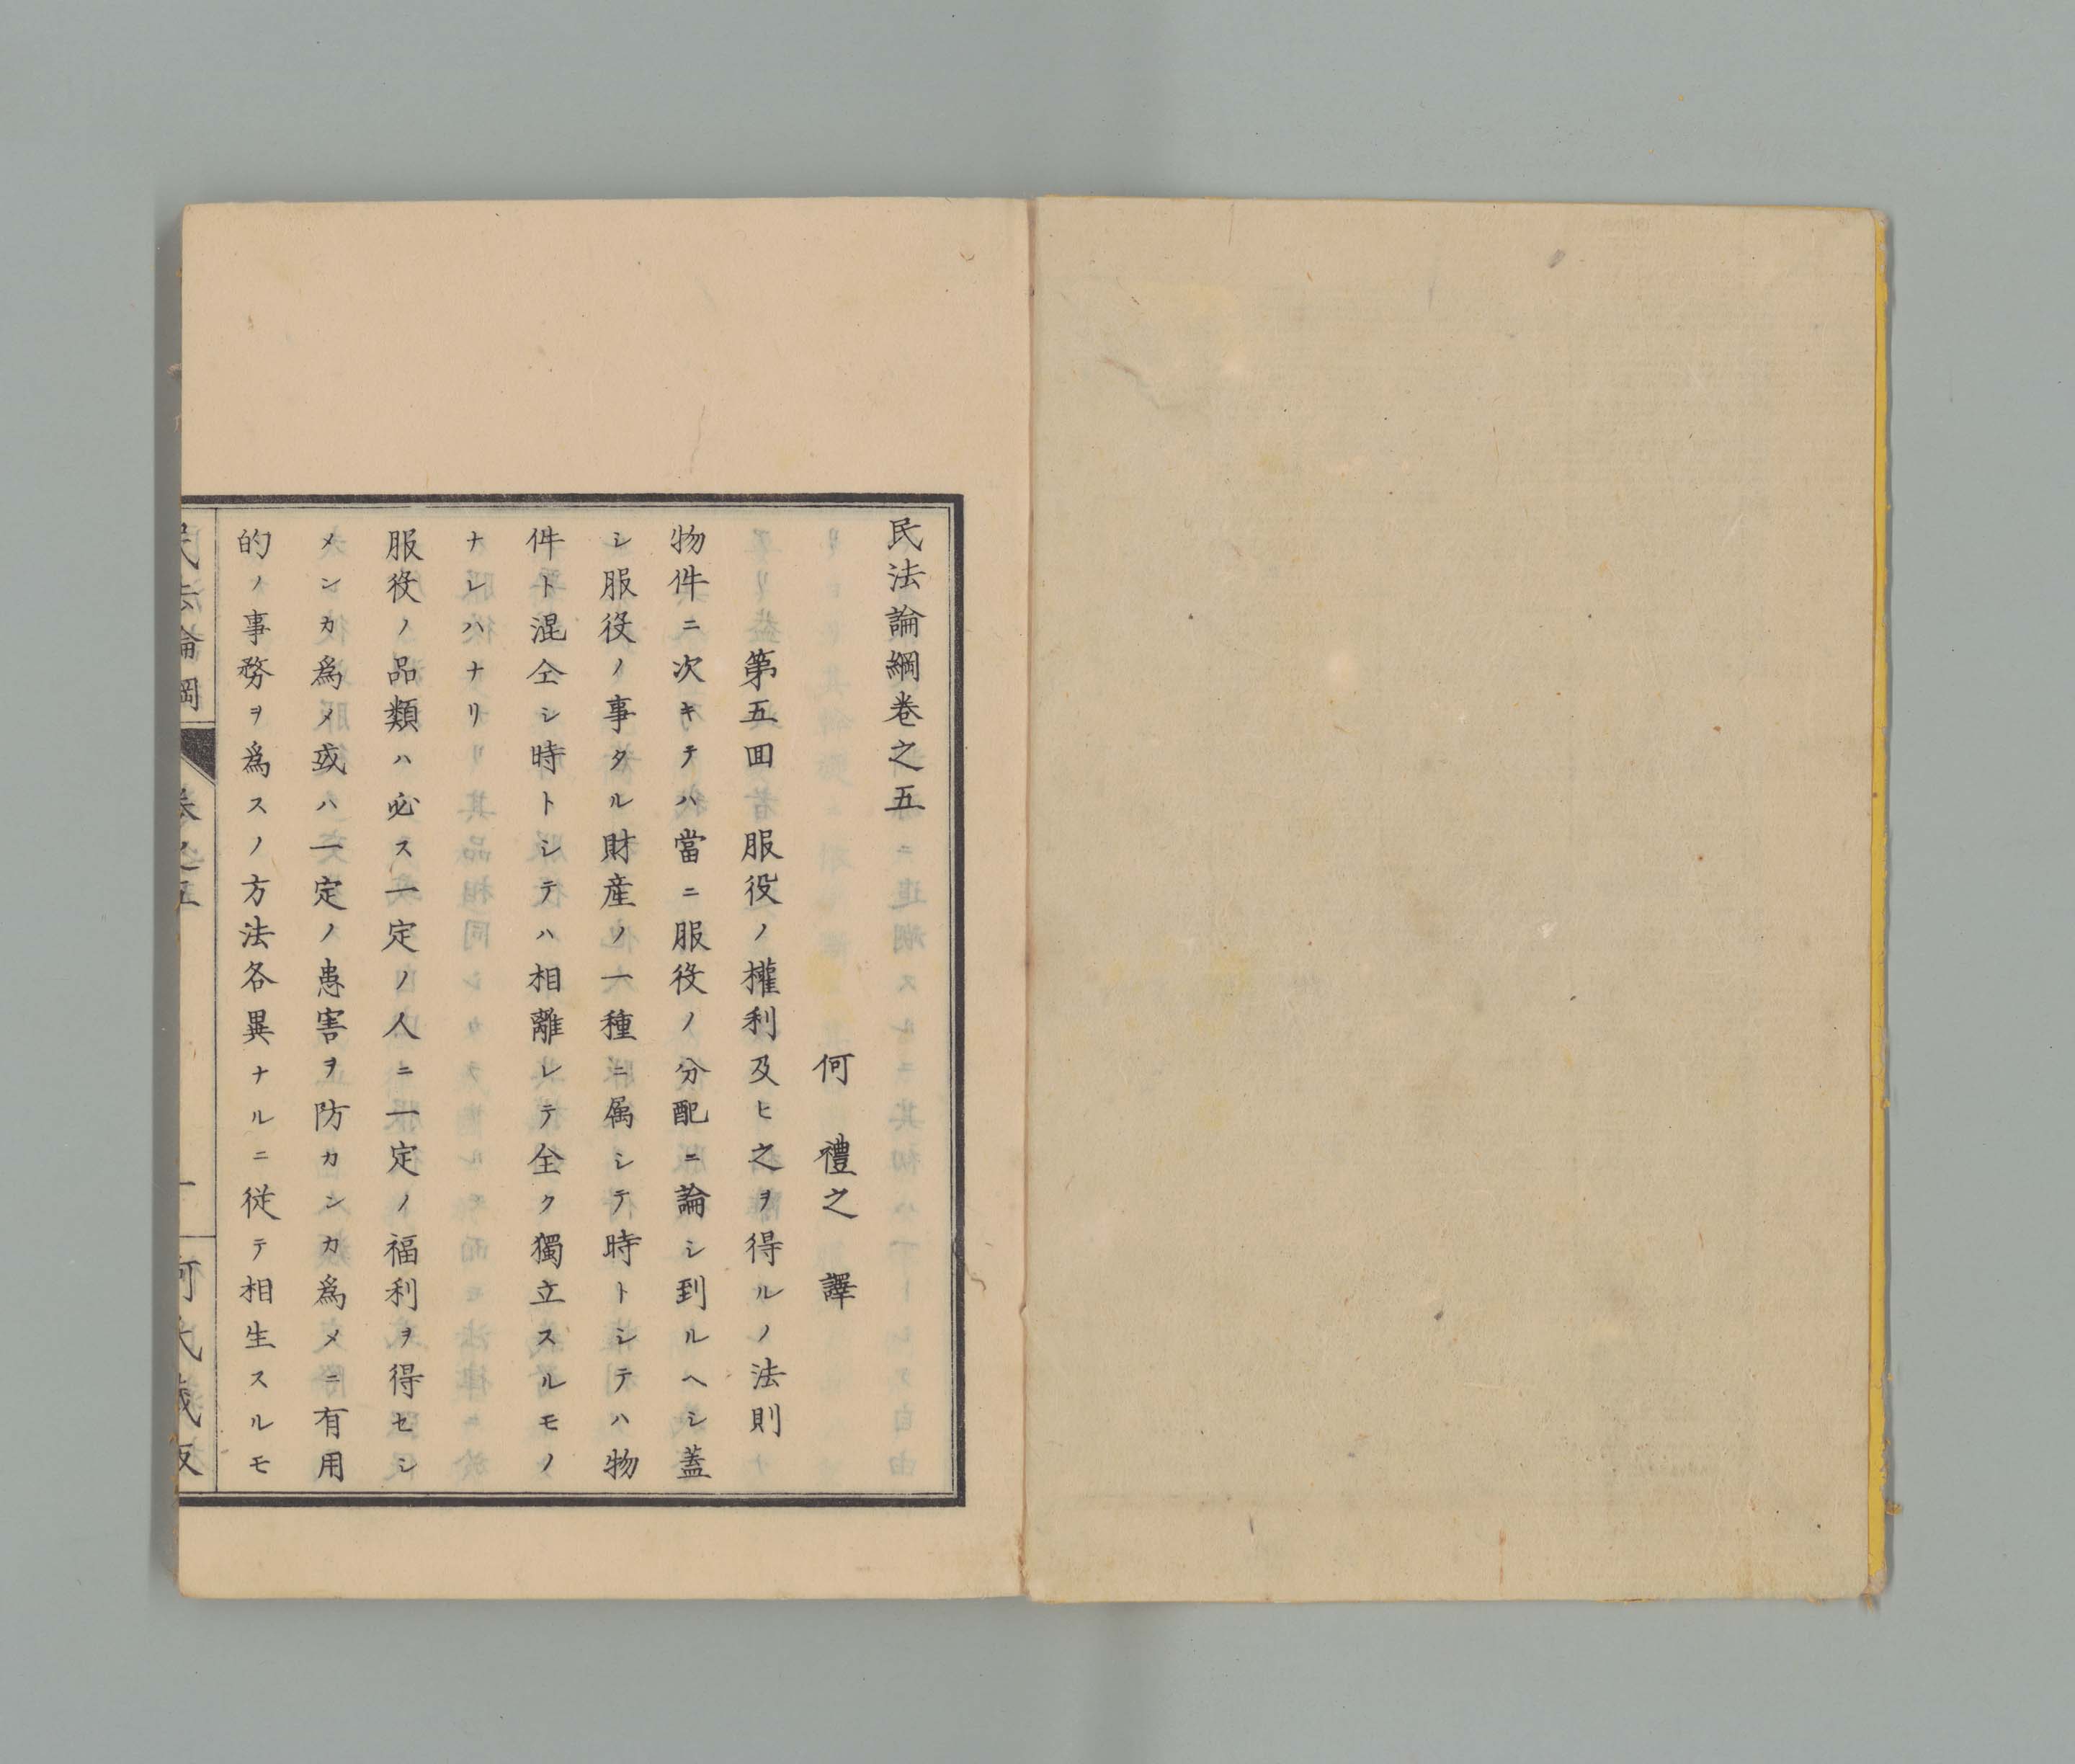 民法論綱卷之五
何禮之譯
第五囬服役ノ權利及ヒ之ヲ得ルノ法則
物件ニ次キテハ當ニ服役ノ分配ニ論シ到ルヘシ蓋
シ服役ノ事タル財産ノ一種ニ属シテ時トシテハ物
件ト混仝シ時トシテハ相離レテ全ク獨立スルモノ
ナレハナリ
服役ノ品類ハ必ス一定ノ人ニ一定ノ福利ヲ得セシ
メンカ爲メ或ハ一定ノ患害ヲ防カンカ爲メニ有用
的ノ事務ヲ爲スノ方法各異ナルニ従テ相生スルモ
民法論綱
卷之五
一
何氏藏版